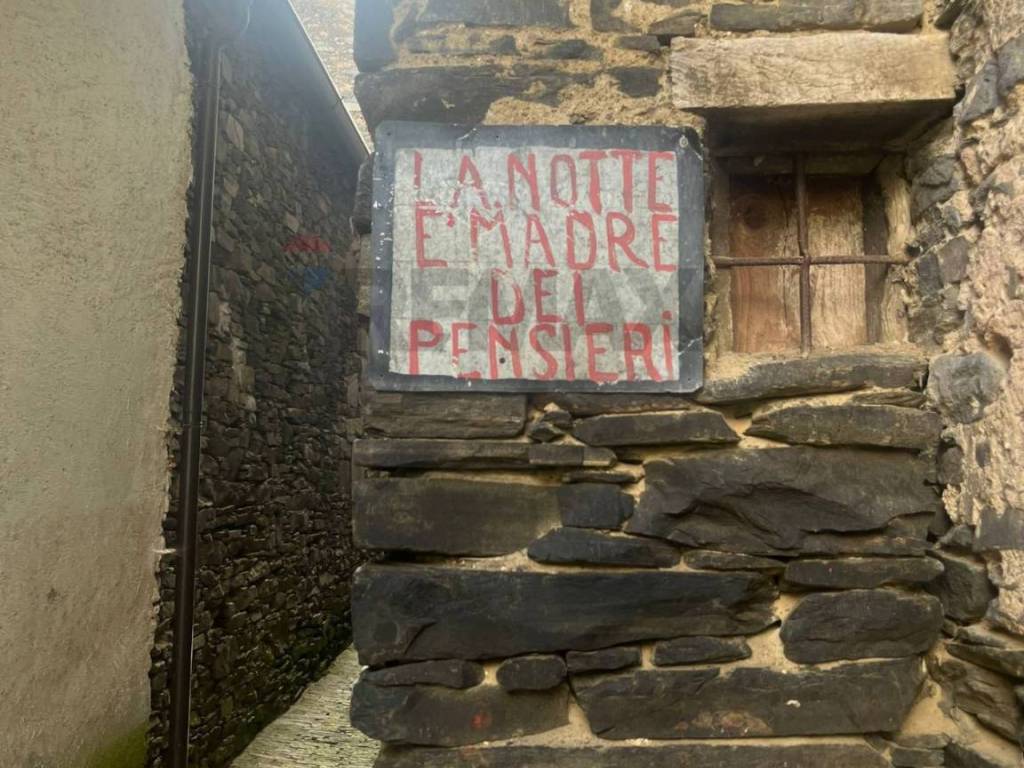 LA NOTTE
E' MADRE
DEI
PENSIERI
RE/MAX